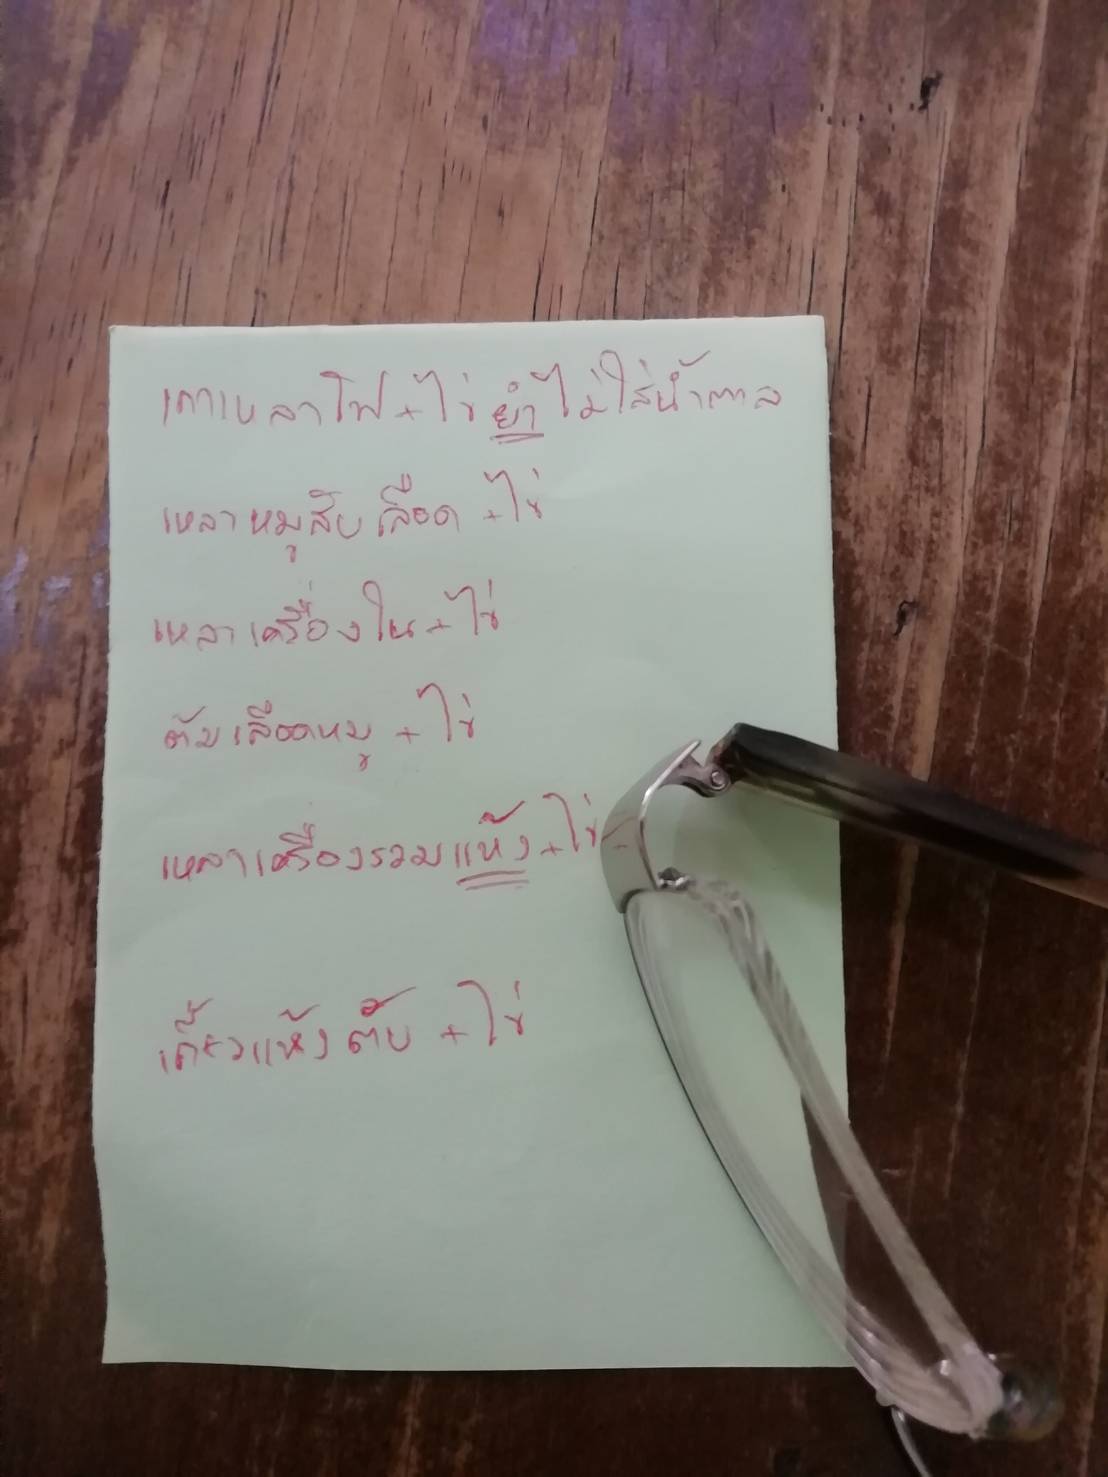 เกาเหลาไฟ+ไข่ ยำ ไม่ใส่น้ำตาล
เหลาหมูสับเลือด +ไข่
เหลาเครื่องใน+ไข่
ต้มเลือดหมู +ไข่
เหลาเครื่องรวมแห้ง+ไข่
เตี๋ยวแห้งตับ +ไข่